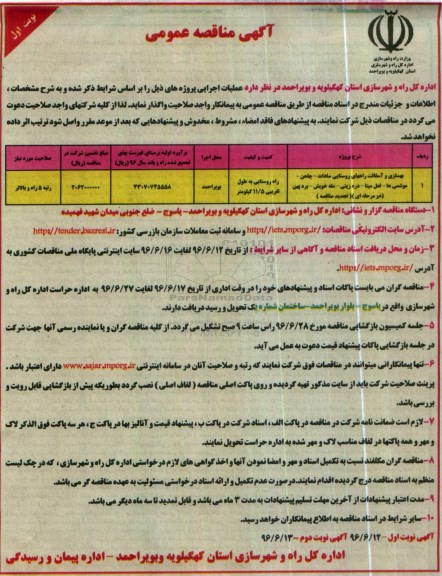 نوبت اول
آگهی مناقصه عمومی
وزارت راه و شهرسازی
اداره کل راه و شهرسازی
استان کهگیلویه و بویراحمد
اداره کل راه و شهرسازی استان کهگیلویه و بویراحمد در نظر دارد عملیات اجرایی پروژه های ذیل را بر اساس شرایط ذکر شده و به شرح مشخصات ،
اطلاعات و جزئیات مندرج در اسناد مناقصه از طریق مناقصه عمومی به پیمانکار واجد صلاحیت واگذار نماید. لذا از کلیه شرکتهای واجد صلاحیت دعوت
می گردد در مناقصات ذیل شرکت نمایند. به پیشنهادهای فاقد امضاء ، مشروط ، مخدوش و پیشنهادهایی که بعد از موعد مقرر واصل شود ترتیب اثر داده
نخواهد شد.
ردیف شرح پروژه کمیت و کیفیت محل اجرا برآورد اولیه برمبنای فهرست بهای تجمیع شده راه و باند سال ۹۶ (ریال) مبلغ تضمین شرکت در مناقصه (ریال) صلاحیت مورد نیاز
۱ بهسازی و آسفالت راههای روستایی سادات - چاهن - موشمی ها - لعل مینا - دره زینی - مله خویش - برد پهن (دو مرحله ای) (تجدید مناقصه) راه روستایی به طول تقریبی ۱۱/۵ کیلومتر بویراحمد ۴۳۰۷۰۷۳۵۵۵۸ ۲۰۶۲۰۰۰۰۰۰ رتبه ۵ راه و بالاتر
۱-دستگاه مناقصه گزار و نشانی: اداره کل راه و شهرسازی استان کهگیلویه و بویراحمد- یاسوج - ضلع جنوبی میدان شهید فهمیده
۲-آدرس سایت الکترونیکی مناقصات: http//iets.mporg.ir/ و سامانه ثبت معاملات سازمان بازرسی کشور: http//tender.bazresi.ir
۳- زمان و محل دریافت اسناد مناقصه و آگاهی از سایر شرایط : از تاریخ ۹۶/۶/۱۲ لغایت ۹۶/۶/۱۶ سایت اینترنتی پایگاه ملی مناقصات کشوری به
آدرس http//iets.mporg.ir/.
۴-مناقصه گران می بایست پاکات اسناد و پیشنهادهای خود را در وقت اداری از تاریخ ۹۶/۶/۱۷ لغایت ۹۶/۶/۲۷ به اداره حراست اداره کل راه و
شهرسازی واقع در یاسوج - بلوار بویراحمد - ساختمان شماره یک تحویل و رسید دریافت دارند.
۵- جلسه کمیسیون بازگشایی مناقصه مورخ ۹۶/۶/۲۸ راس ساعت ۹ صبح تشکیل می گردد. از کلیه مناقصه گران و یا نماینده رسمی آنها جهت شرکت
در جلسه بازگشایی پاکات پیشنهاد قیمت دعوت به عمل می آید.
۶-تنها پیمانکارانی میتوانند در مناقصات فوق شرکت نمایند که رتبه و صلاحیت آنان در سامانه اینترنتی www.sajar.mporg.ir دارای اعتبار باشد .
پرینت صلاحیت شرکت باید از سایت مذکور تهیه گردیده و روی پاکت اصلی مناقصه ( لفاف اصلی ) نصب گردد بطوریکه پیش از بازگشایی قابل رویت و
بررسی باشد.
۷-لازم است ضمانت نامه شرکت در مناقصه در پاکت الف ، اسناد شرکت در پاکت ب ، پیشنهاد قیمت و آنالیز بها در پاکت ج ، هر سه پاکت فوق الذکر لاک
و مهر و همه پاکتها در لفاف مناسب لاک و مهر شده به اداره حراست تحویل نمایند.
۸-مناقصه گران مکلفند نسبت به تکمیل اسناد و مهر و امضا نمودن آنها و اخذ گواهی های لازم درخواستی اداره کل راه و شهرسازی ، که در چک لیست
منظم به اسناد مناقصه درج گردیده اقدام نمایند. در صورت عدم تکمیل و ارائه اسناد درخواستی مسئولیت به عهده مناقصه گر می باشد.
۹-مدت اعتبار پیشنهادات از آخرین مهلت تسلیم پیشنهادات به مدت ۳ ماه می باشد و قابل تمدید تا سه ماه دیگر می باشد.
۱۰-سایر شرایط در اسناد مناقصه به اطلاع پیمانکاران خواهد رسید.
آگهی نوبت اول - ۹۶/۶/۱۲ آگهی نوبت دوم - ۹۶/۶/۱۳
اداره کل راه و شهرسازی استان کهگیلویه وبویراحمد - اداره پیمان و رسیدگی